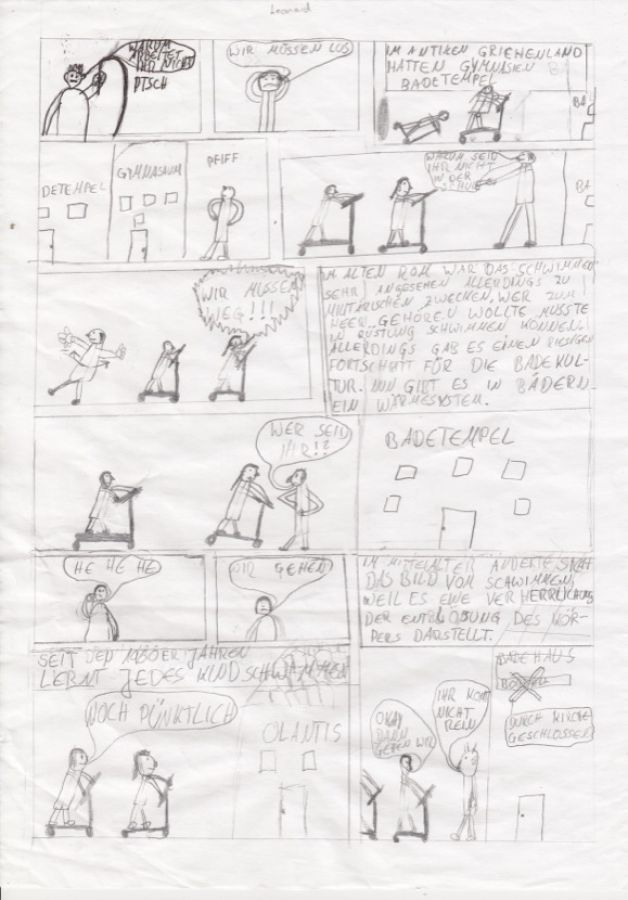 Leonard
WARUM
ARBEITET
IHR NICHT
PTSCH
WIR MÜSSEN LOS
IM ANTIKEN GRIECHENLAND
HATTEN GYMNASIEN
BADETEMPEL
BA
DETEMPEL
GYMNASIUM
PFEIFF
WARUM SEID
IHR NICHT
IN DER
SCHULE
BA
WIR MÜSSEN
WEG!!!
IM ALTEN ROM WAR DAS SCHWIMMEN
SEHR ANGESEHEN ALLERDINGS ZU
MILITÄRISCHEN ZWECKEN. WER ZUM
HEER GEHÖREN WOLLTE MUSSTE
IN RÜSTUNG SCHWIMMEN KÖNNEN.
ALLERDINGS GAB ES EINEN RIESIGEN
FORTSCHITT FÜR DIE BADEKUL-
TUR. NUN GIBT ES IN BÄDERN
EIN WÄRMESYSTEM.
WER SEID
IHR!?
BADETEMPEL
HE HE HE
WIR GEHEN
IM MITTELALTER ÄNDERTE SICH
DAS BILD VOM SCHWIMMEN
WEIL ES EINE VERHERRLICHUNG
DER ENTBLÖßUNG DES KÖR-
PERS DARSTELLT.
SEIT DEN JAHREN
LERNT JEDES KIND SCHWIMMEN
NOCH PÜNKTLICH
OLANTIS
OKAY
DANN
GEHEN WIR
IHR KOMMT
NICHT
REIN
BADEHAUS
DURCH KIRCHE
GESCHLOSSEN